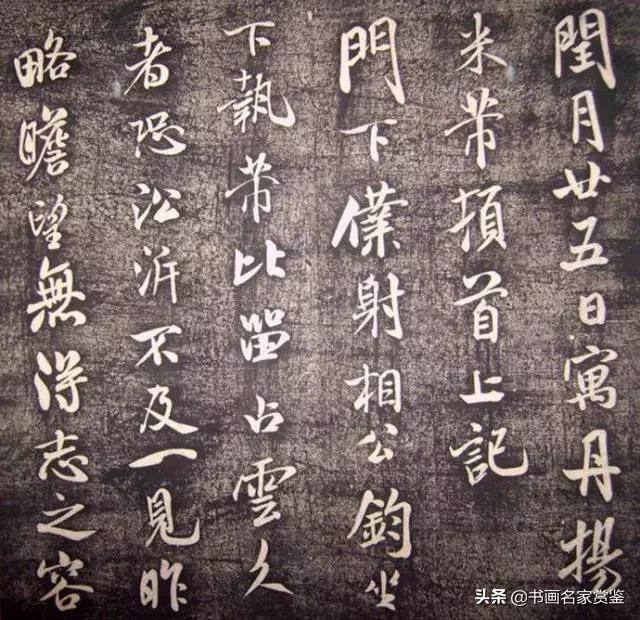 閏月廿五日寓丹揚
米芾頓首上記
門下僕射相公鈞坐
下執芾比留占雲久
者恐沿泝不及一見昨
略瞻望無得志之容
头条 @书画名家赏鉴